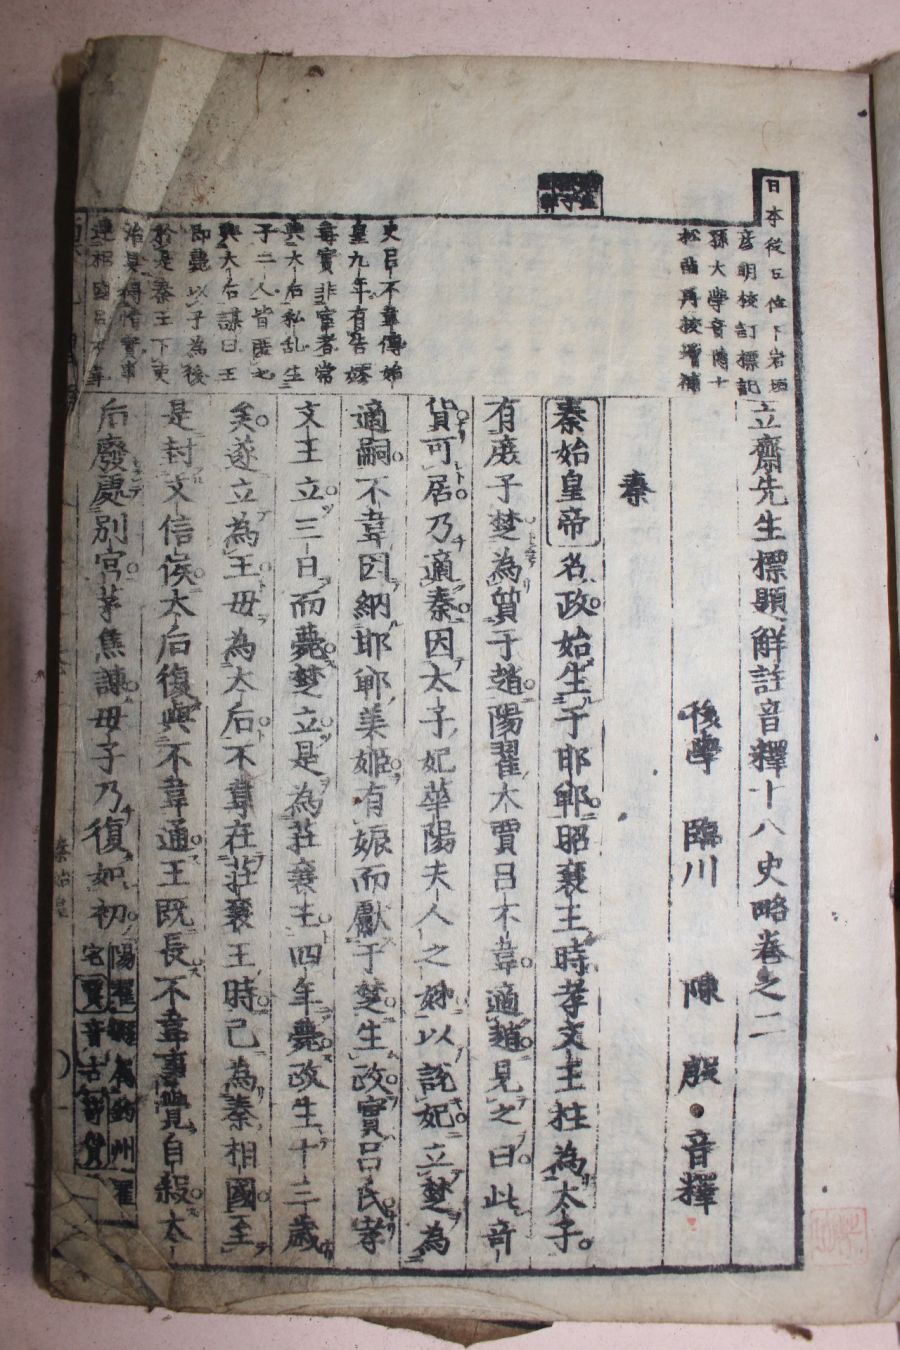 立齋先生標題解註音釋十八史略卷之二
後學 臨川 陳殷 音釋
秦
秦始皇帝名政始生于邯鄲昭襄王時孝文王柱為太子
有庶子楚為質于趙陽翟大賈呂不韋適趙見之曰此奇
貨可居乃適秦因太子妃華陽夫人之姊以說妃立楚為
適嗣不韋因納邯鄲美姬有娠而獻于楚生政實呂氏孝
文王立三日而薨楚立是為莊襄王四年薨政生十三歲
矣遂立為王母為太后不韋在莊襄王時已為秦相國至
是封文信侯太后復與不韋通王既長不韋事覺自殺太
后廢處別宮茅焦諫母子乃復如初
陽翟縣 鈞州翟
音古
日本從五位下岩垣
彥明校訂標記
孫大學音博士
松苗再校增補
史呂不韋傳始
皇九年有告嫪
毐實非宦者常
與大后私亂生
子二人皆匿之
與大后謀曰王
即薨以子為後
於是秦王下吏
治具得情實事
連相國呂不韋
秦始皇